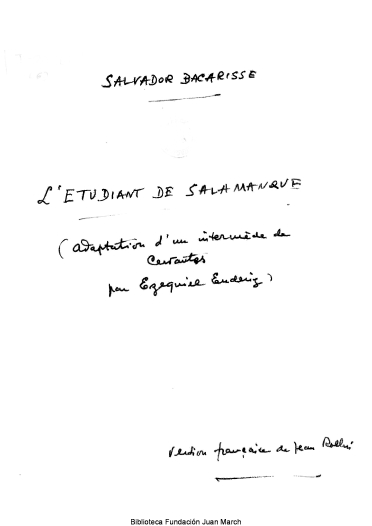 SALVADOR BACARISSE
L'ETUDIANT DE SALAMANQUE
(adaptation d'un intermède de
Cervantes
par Ezequiel Enderiz)
Version française de Jean
Biblioteca Fundación Juan March